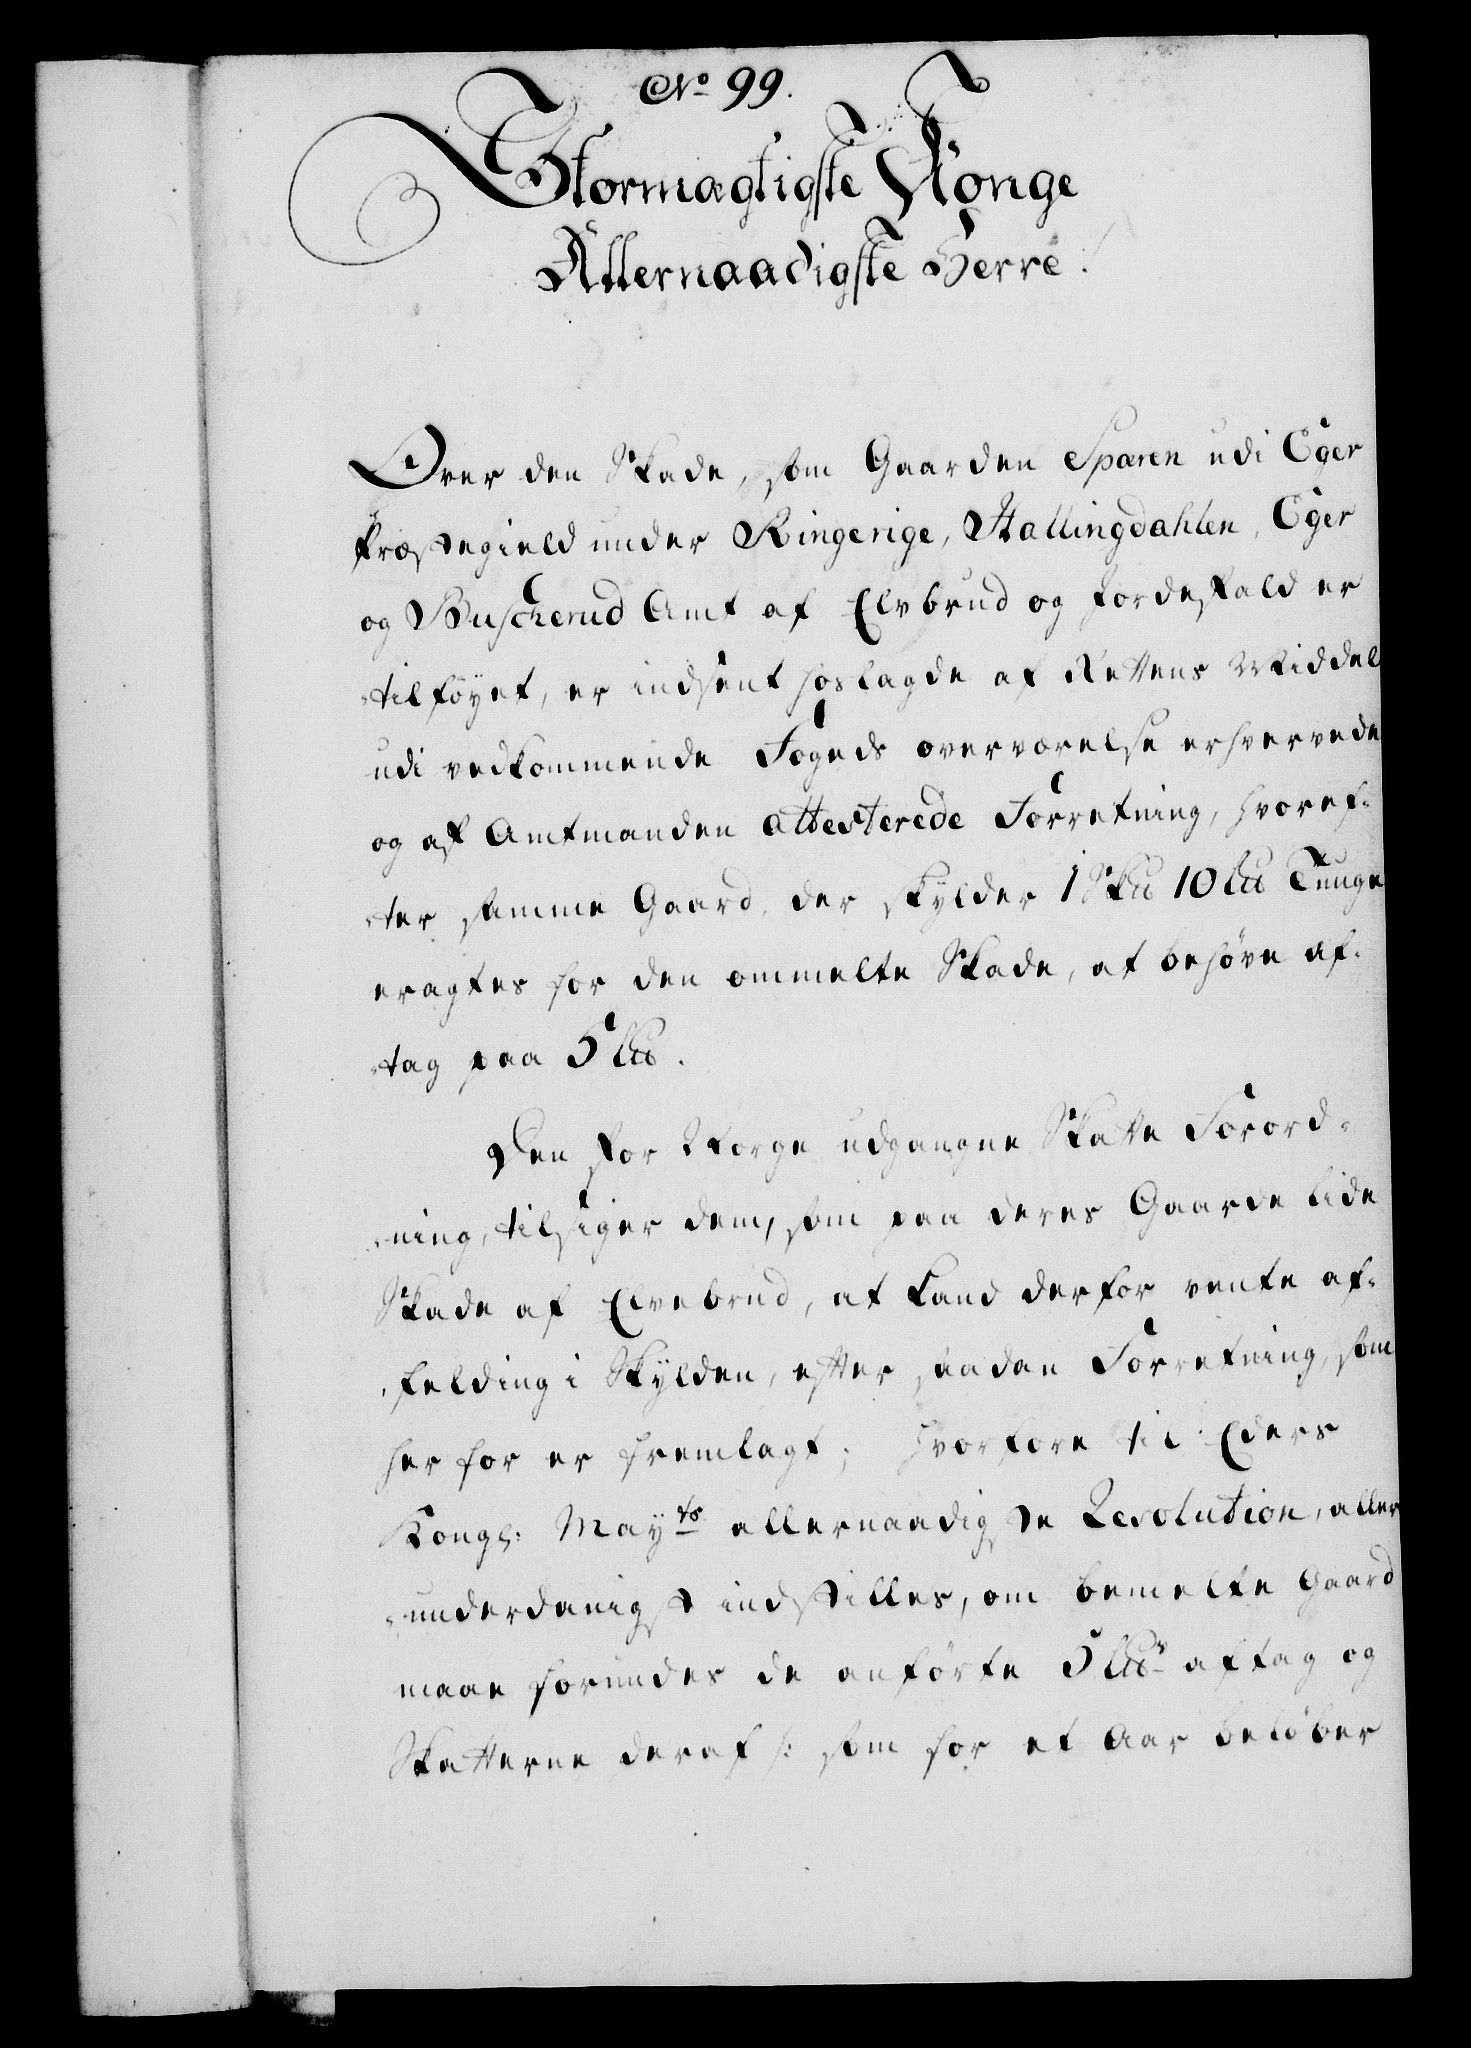 No 99.
Stormægtigste Konge
Allernaadigste Herre!
Over den Skade, som Gaarden Sparen udi Eger
Præstegield under Ringerige, Hallingdahlen, Eger
og Buscherud Amt af Elvbrud og Jordeskald er
tilföyet, er indsent hoslagde af Rettens Middel
udi vedkommende Fogeds overværelse erhvervede
og af Amtmanden attesterede Forretning, hvoref-
ter samme Gaard, der skylder 1 Skd 10 Lb Tunge
eragtes for den ommelte Skade, at behöve af-
tag paa 5 Lb.
Den for Norge udgangne Skatte Forord-
ning, tilsiger dem, som paa deres Gaarde lide
Skade af Elvebrud, at kand derfor vente af-
felding i Skylden, efter saadan Forretning, som
her for er fremlagt; hvorfore til Eders
Kongl: Mayts allernaadigste Resolution, aller
underdanigst indstilles, om bemelte Gaard
maae forundes de anförte 5 Lbs aftag og
Skatterne deraf /: som for et Aar belöber